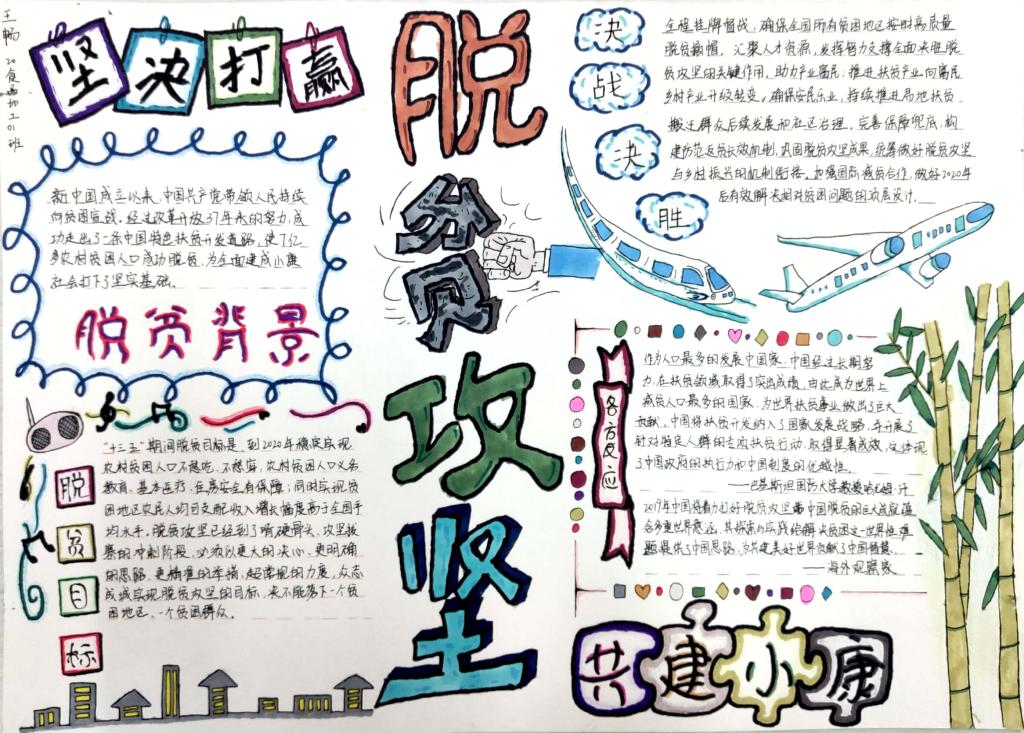 王畅
20食品加工01班
坚决打赢
新中国成立以来，中国共产党带领人民持续
向贫困宣战。经过改革开放37年来的努力，成
功走出了一条中国特色扶贫开发道路，使7亿
多农村贫困人口成功脱贫，为全面建成小康
社会打下了坚实基础。
脱贫背景
脱贫目标
"十三五"期间脱贫目标是，到2020年稳定实现
农村贫困人口不愁吃、不愁穿，农村贫困人口义务
教育、基本医疗、住房安全有保障；同时实现贫
困地区农民人均可支配收入增长幅度高于全国平
均水平。脱贫攻坚已经到了啃硬骨头、攻坚拔
寨的冲刺阶段，必须以更大的决心、更明确
的思路、更精准的举措、超常规的力度，众志
成城实现脱贫攻坚的目标，决不能落下一个贫
困地区、一个贫困群众。
脱贫攻坚
决战决胜
全程挂牌督战，确保全国所有贫困地区按时高质量
脱贫摘帽。汇聚人才资源，发挥智力支撑全面决胜脱
贫攻坚的关键作用。助力产业富民，推进扶贫产业向富民
乡村产业升级转变。确保安居乐业，持续推进易地扶贫
搬迁群众后续发展和社区治理。完善保障兜底，构
建防范返贫长效机制，巩固脱贫攻坚成果，统筹做好脱贫攻坚
与乡村振兴的机制衔接。加强国际减贫合作，做好2020年
后有效解决相对贫困问题的顶层设计。
各方反应
作为人口最多的发展中国家，中国经过长期努
力，在扶贫领域取得了突出成绩，由此成为世界上
减贫人口最多的国家，为世界扶贫事业做出了巨大
贡献。中国将扶贫开发纳入了国家发展战略，并开展了
针对特定人群的专项扶贫行动，取得显著成效，这体现
了中国政府的执行力和中国制度的优越性。
——巴基斯坦国防大学教授
2019年中国将着力打好脱贫攻坚
为共建美好世界贡献了中国智慧。
——海外观察家
共建小康